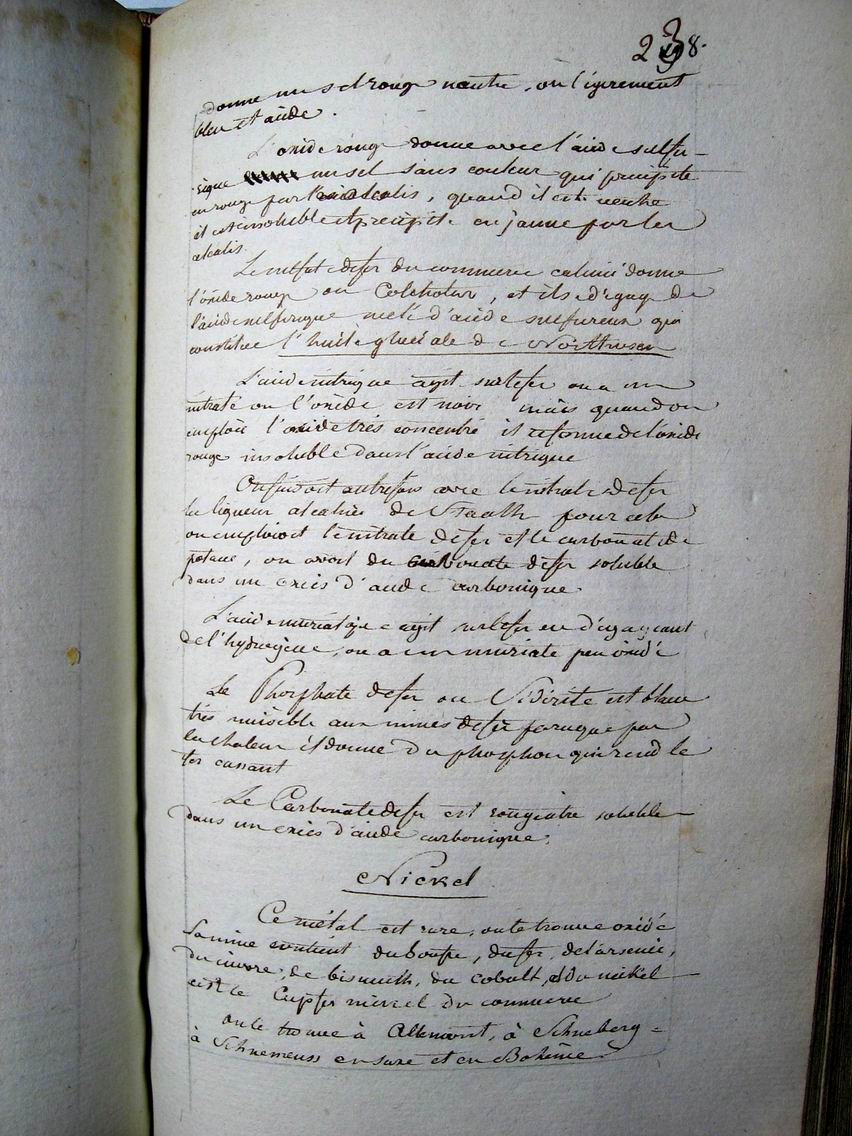 238.
donne un sel rouge neutre, ou légèrement
bleu et acide.
L'oxide rouge donne avec l'acide sulfu-
rique un sel sans couleur qui précipite
en rouge par les alcalis, quand il est neutre
il est insoluble et précipite en jaune par les
alcalis.
Le sulfate de fer du commerce calciné donne
l'oxide rouge ou Colchotar, et il se dégage de
l'acide sulfurique mêlé d'acide sulfureux qui
constitue l'huile glaciale de Northusen
L'acide nitrique agit sur le fer on a un
nitrate ou l'oxide est noir mais quand on
emploie l'acide très concentré il se forme de l'oxide
rouge insoluble dans l'acide nitrique
On faisoit autrefois avec le nitrate de fer
la liqueur alcaline de Staalh pour cela
on employoit le nitrate de fer et le carbonate de
potasse, on avoit du carbonate de fer soluble
dans un excès d'acide carbonique.
L'acide muriatique agit sur le fer en dégageant
de l'hydrogène, on a un muriate peu oxidé
Le Phosphate de fer ou Sidérite est bleu
très nuisible aux mines de fer parceque par
la chaleur il donne du phosphore qui rend le
fer cassant
Le Carbonate de fer est rougeatre soluble
dans un excès d'acide carbonique.
Nickel
Ce métal est rare, on le trouve oxidé
sa mine contient du soufre, du fer, de l'arsenic,
du cuivre, de bismuth, du cobalt, et du nickel
c'est le Cupfer nickel du commerce
on le trouve à Allemont, à Schneberg
à en saxe et en Bohême